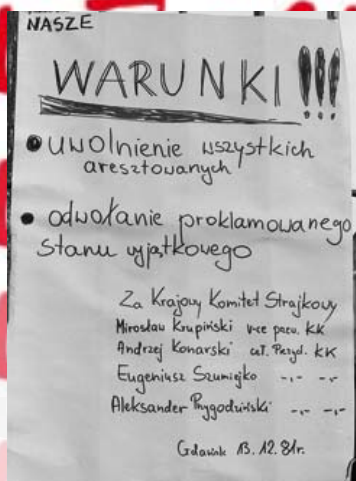 NASZE
WARUNKI!!!
● uwolnienie wszystkich
aresztowanych
● odwołanie proklamowanego
stanu wyjątkowego
Za Krajowy Komitet Strajkowy
Mirosław Krupiński v-ce przew. KK
Andrzej Konarski czł. Prezyd. KK
Eugeniusz Szumiejko -,- -,-
Aleksander Przygodziński -,- -,-
Gdańsk 13.12.81r.